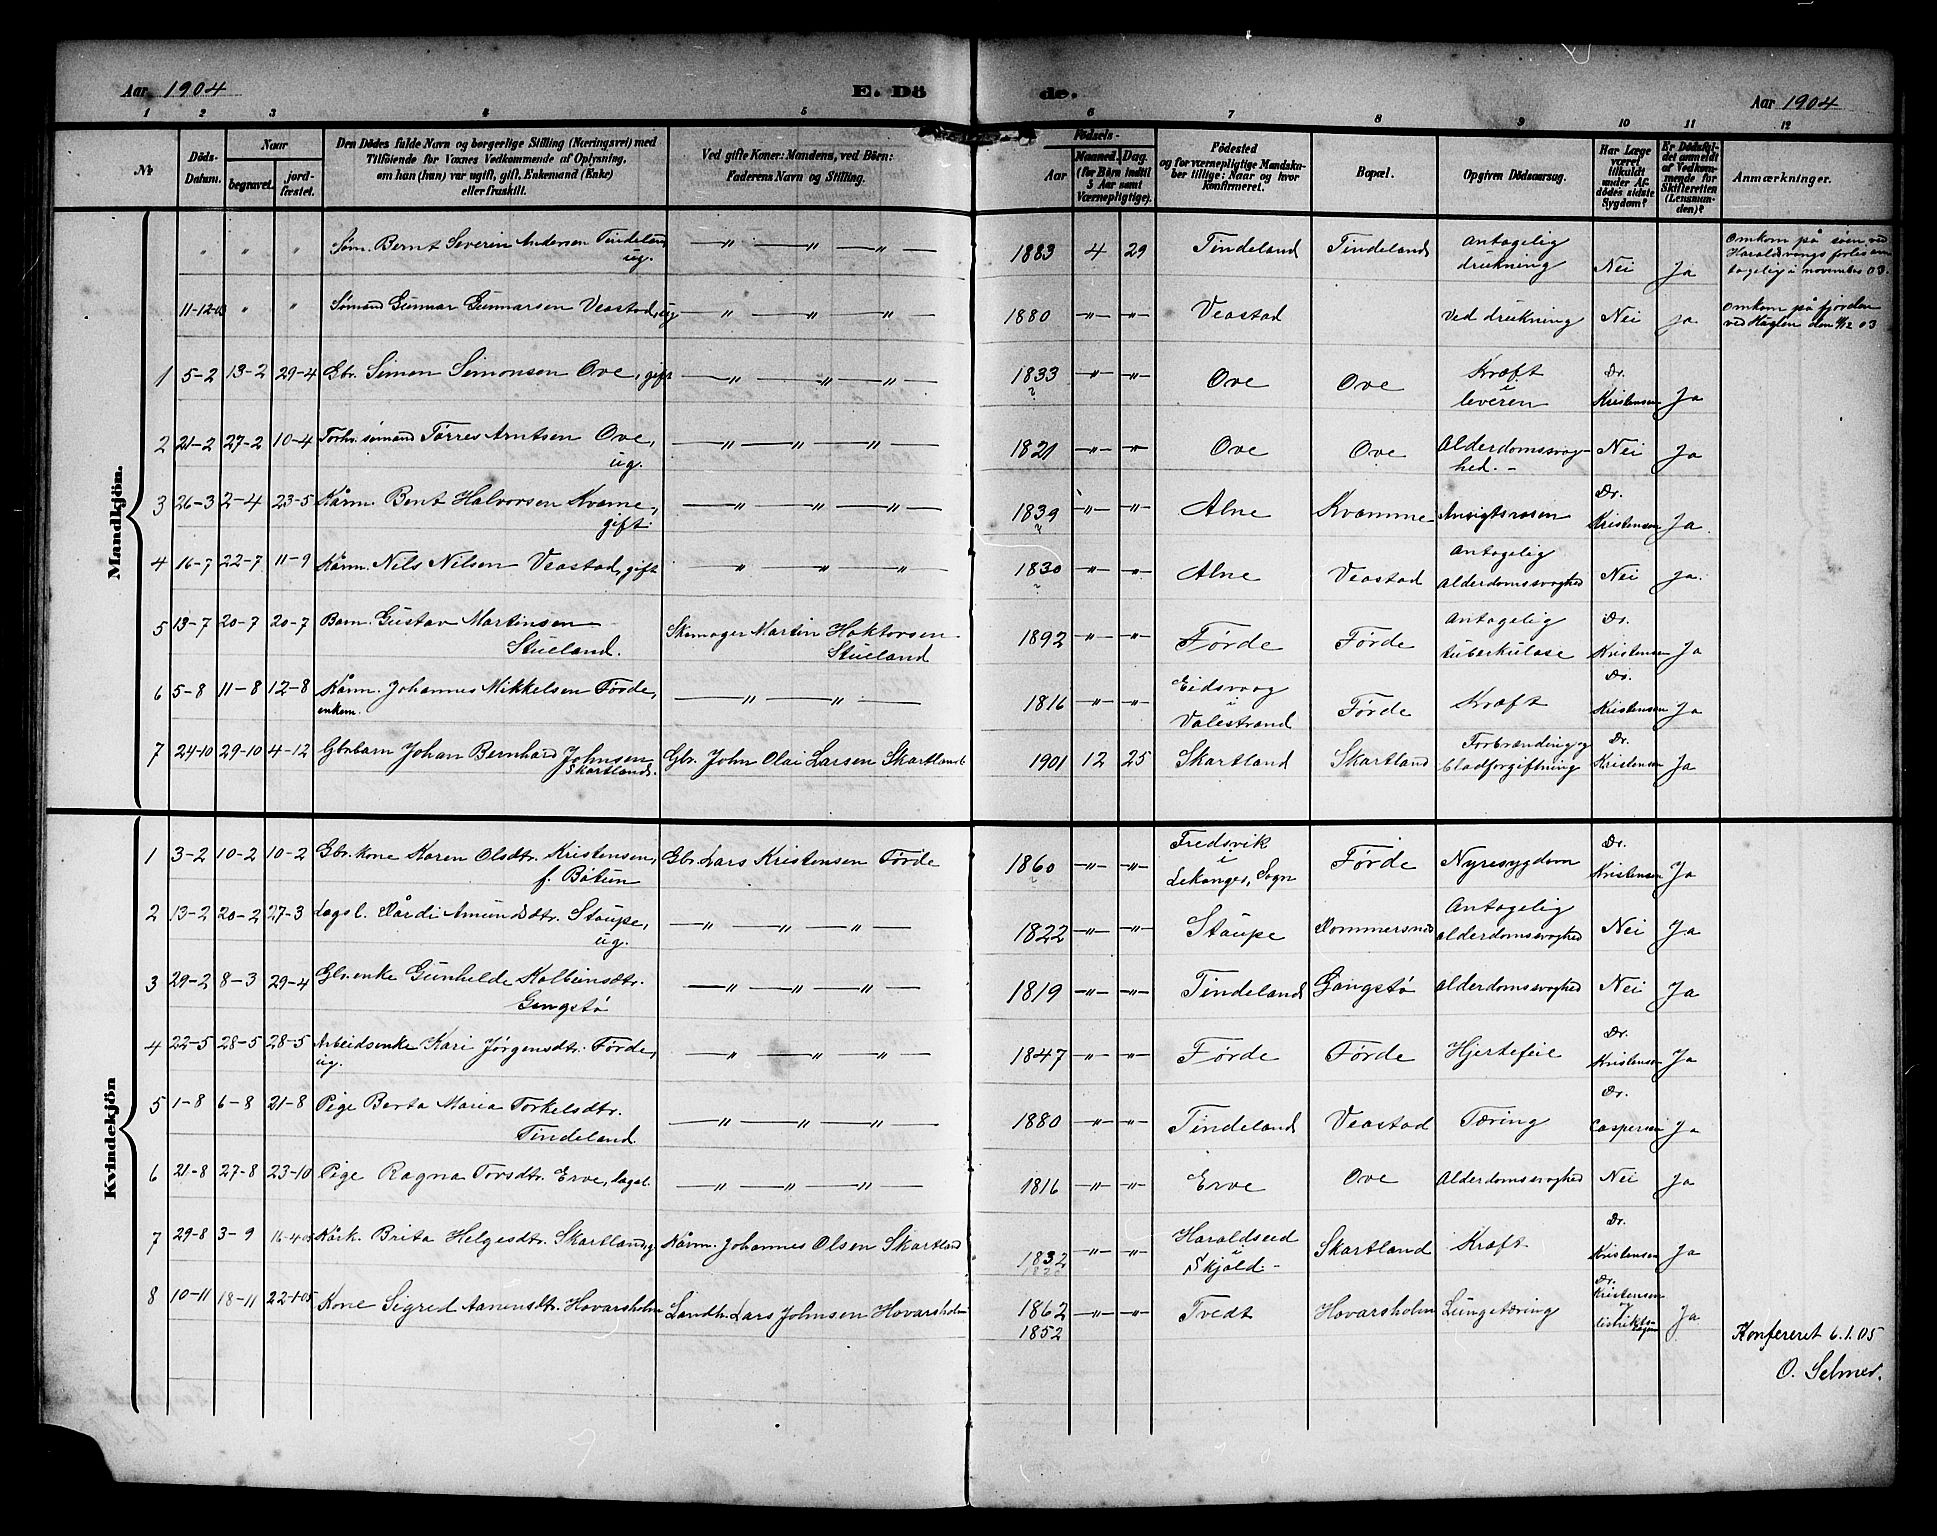 Aar 1904
E. Dö
de.
Aar 1904
1 2 3 4 5 6 7 8 9 10 11 12
No
Döds-Datum.
Naar
begravet.
jord-fæstet.
Den Dödes fulde Navn og borgerlige Stilling (Næringsvei) med
Tilföiende for Voxnes Vedkommende af Oplysning,
om han (hun) var ugift, gift, Enkemand (Enke)
eller fraskilt.
Ved gifte Koner: Mandens, ved Börn:
Faderens Navn og Stilling.
Födsels-
Aar
Maaned. Dag.
(for Börn indtil
5 Aar samt
Værnepligtige).
Födested
og for værnepligtige Mandska-
ber tillige: Naar og hvor
Konfirmeret.
Bopæl.
Opgiven Dödsaarsag.
Har Læge
været
tilkaldt
under Af-
dödes sidste
Sygdom?
Er Dödsfal-
det anmeldt
af Vedkom-
mende for
Skifteretten
(Lensman-
den)?
Anmærkninger.
Mandkjön.
" " " Søm. Bernt Severin Andersen Tindeland ug. — " — " — 1883 4 29 Tindeland Tindeland Antagelig drukning Nei Ja Omkom på søen ved Haraldsvangs forlis antagelig i november 03.
11-12-03 " " Sømand Gunnar Gunnarsen Veastad, ug — " — " — " — 1880 -"- -"- Veastad Ved drukning Nei Ja Omkom på fjorden ved Høglen den 11/12 03
1 5-2 13-2 29-4 Gbr. Simon Simonsen Ove, gift — " — " — " — 1833 -"- -"- Ove Ove Kræft i leveren Dr. Kristensen Ja
2 21-2 27-2 10-4 Forhv. sømand Tørres Arntsen Ove, ug. — " — " — " — 1821 -"- -"- Ove Ove Alderdomssvaghed. - Nei Ja
3 26-3 2-4 23-5 Kårm. Bent Halvorsen Kvame, gift. — " — " — " — 1839 -"- -"- Alne Kvamme Ansigtsrosen Dr. Kristensen Ja
4 16-7 22-7 11-9 Kårm. Nils Nilsen Veastad, gift — " — " — " — 1830 -"- -"- Alne Veastad Antagelig Alderdomssvaghed Nei Ja.
5 13-7 20-7 20-7 Barn. Gustav Martinsen Stueland. Skomager Martin Haktorsen Stueland 1892 -"- -"- Førde Førde Antagelig tuberkulose Dr. Kristensen Ja
6 5-8 11-8 12-8 Kårm. Johannes Mikkelsen Førde, enkem. — " — " — 1816 -"- -"- Eidsvaag i Valestrand Førde Kræft Dr. Kristensen Ja
7 24-10 29-10 4-12 Gbrbarn Johan Bernhard Johnsen Skartland. Gbr. John Olai Larsen Skartland 1901 12 25 Skartland Skartland Forbrænding og blodforgiftning Dr. Kristensen Ja
Kvindekjön
1 3-2 10-2 10-2 Gbr. kone Karen Olsdtr. Kristensen, f. Bøtun Gbr. Lars Kristensen Førde 1860 -"- -"- Fredsvik i Lekanger, Sogn Førde Nyresygdom Dr. Kristensen Ja
2 13-2 20-2 27-3 Lagsl. Vårdi Amundsdtr. Staupe, ug. — " — " — " — 1822 -"- -"- Staupe Vommersnes Antagelig alderdomssvaghed Nei Ja
3 29-2 8-3 29-4 Gbr. enke Gunhilde Kolbeinsdtr. Gangstø — " — " — " — 1819 -"- -"- Tindeland Gangstø Alderdomssvaghed Nei Ja
4 22-5 28-5 28-5 Arbeidsenke Kari Jørgensdtr. Førde, ug. — " — " — " — 1847 -"- -"- Førde Førde Hjertefeil Dr. Kristensen Ja
5 1-8 6-8 21-8 Pige Berta Maria Torkelsdtr. Tindeland — " — " — " — 1880 -"- -"- Tindeland Veastad Tæring Dr. Caspersen Ja
6 21-8 27-8 23-10 Pige Ragna Torsdtr. Erve, lagsl. — " — " — " — 1816 -"- -"- Erve Ove Alderdomssvaghed Nei Ja
7 29-8 3-9 16-4-05 Kårk. Brita Helgesdtr. Skartland, g Kårm. Johannes Olsen Skartland 1832 -"- -"- Haraldseid i Skjold - Skartland Kræft Dr. Kristensen Ja
8 10-11 18-11 22-1-05 Kone Sigred Aanensdtr. Hovarsholm Landh. Lars Johnsen Hovarsholm 1862 1852 -"- -"- Tvedt Hovarsholm Lungetæring Dr. Kristensen og distriktslægen Ja
Konfereret 6.1.05
O. Selmer.